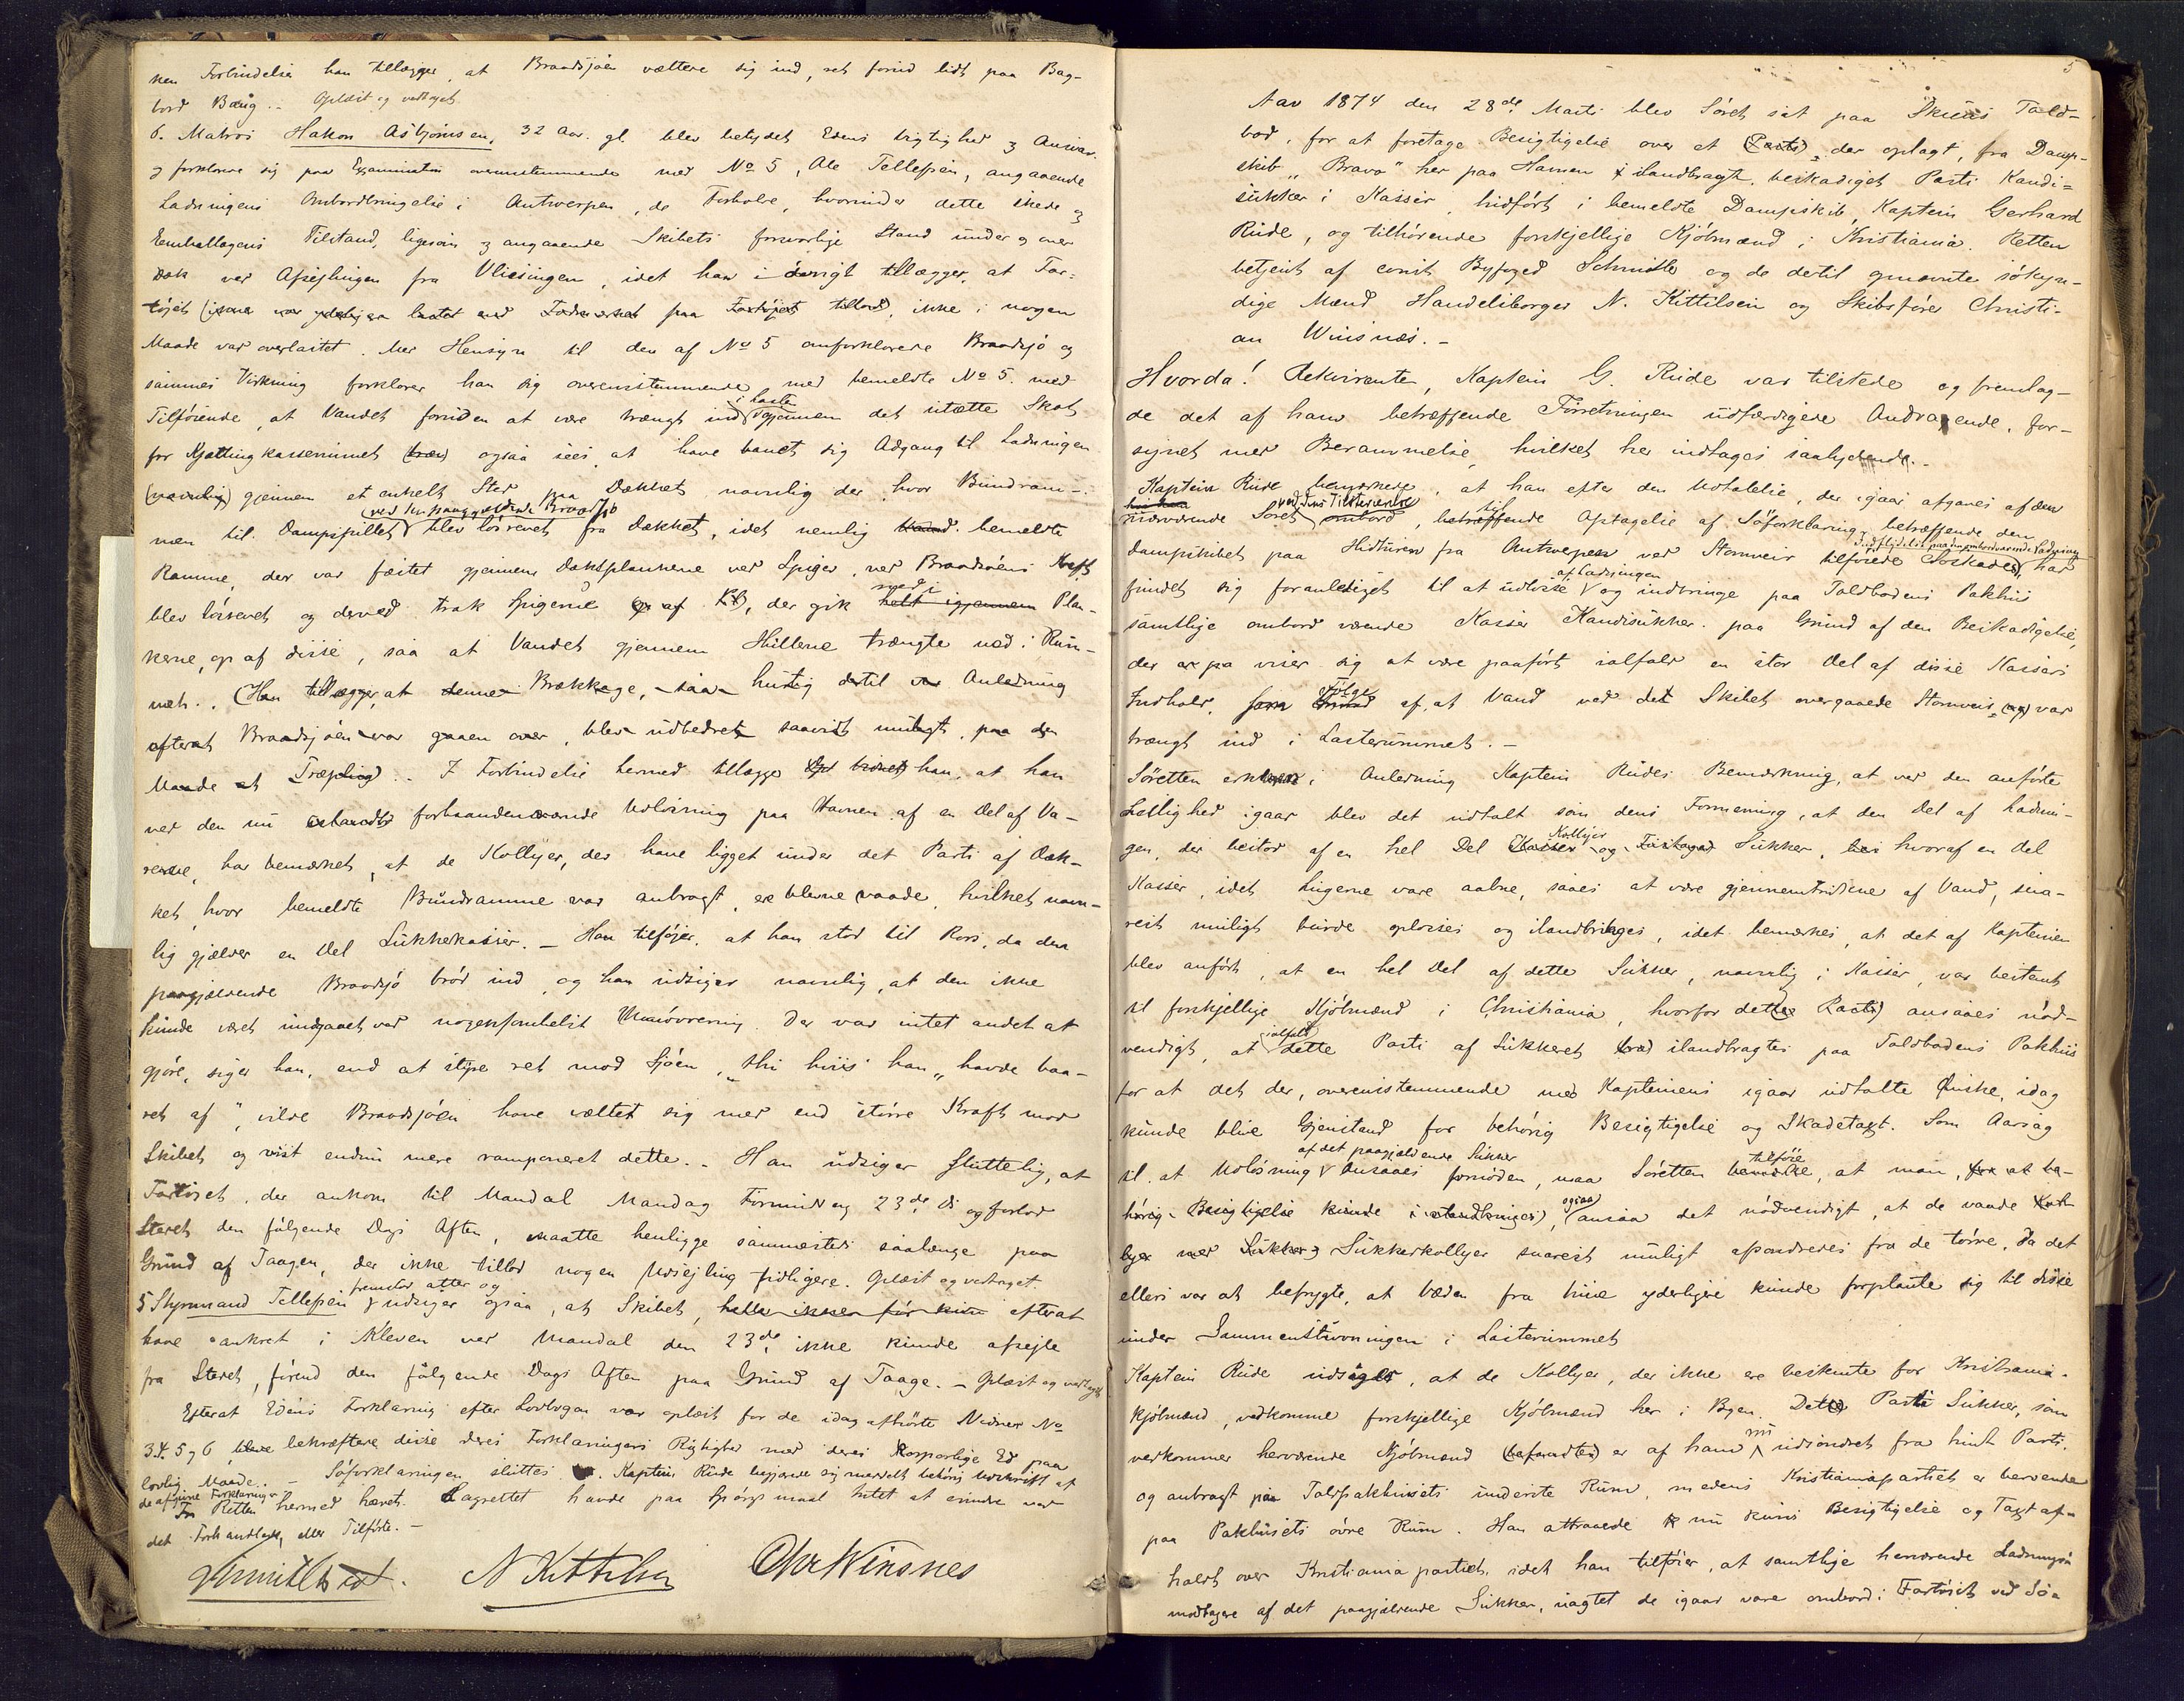 nen Forbindelse han tillægger, at Braadsjøen væltere sig ind, ret forind lidt paa Bag-
bord Boug. - Oplæst og vedtaget.
6. Matros Hakon Asbjørnsen, 32 Aar gl. blev betydet Edens Vigtighed og Ansvar
og forklarede sig paa Examination overensstemmende med No 5, Ole Tellefsen, angaaende
Ladningens Ombordbringelse i Antwerpen, de Forholde, hvorunder dette skede og
Emballagens Tilstand, ligesom og angaaende Skibets forsvarlige Stand under og over
Dæk ved Afsejlingen fra Vliesingen, idet han i øvrigt tillægger, at Far-
tøjet ikke i nogen
Maade var overlastet. Med Hensyn til den af No 5 omforklarede Braadsjø og
sammes Virkning forklarer han sig overensstemmende med bemeldte No 5. med
i Lasten
Tilføiende, at Vandet foruden at være trængt ind gjennem det utætte Skot
for Kjættingkasserummet (træn) ogsaa sees at have banet sig Adgang til Ladningen
(navnlig) gjennem et enkelt Sted paa Dækket navnlig der, hvor Bundram-
ved den paagjældende Braadsjø
men til Dampspillet blev løsrevet fra Dækket, idet nemlig bemeldte
Ramme, der var fæstet gjennem Dæksplankerne ved Spiger, ved Braadsøens Kraft
ned i
blev løsrevet og derved trak Spigerne op af, der gik helt igjennem Plan-
kerne, op af disse, saa at Vandet gjennem Hullerne trængte ned i Rum-
met. (Han tillægger, at denne Brækkage, saa hurtig dertil var Anledning
efterat Braadsjøen var gaaen over, blev udbedret saavidt muligt, paa den
Maade at. I Forbindelse hermed tillægger han, at han
ved den nu forhaandenværende Udlosning paa Havnen af en Del af Va-
rerne, har bemærket, at de Kollyer, der have ligget under det Parti af Dæk-
ket, hvor bemeldte Bundramme var anbragt, ere blevne vaade, hvilket navn-
lig gjælder en Del Sukkerkasser. - Han tilføjer, at han stod til Rors, da den
paagjældende Braadsjø brød ind, og han udsiger navnlig, at den ikke
kunde været undgaaet ved nogensomhelst Manøvrering. Der var intet andet at
gjøre, siger han, end at styre ret mod Sjøen, "thi hvis han" havde baa-
ret af", vilde Braadsjøen have væltet sig med end større Kraft mod
Skibet og vist endnu mere ramponeret dette. - Han udsiger sluttelig, at
Fartøjet, der ankom til Mandal Mandag Formiddag 23de ds og forlod
Stedet den følgende Dags Aften, maatte henligge sammesteds saalænge paa
Grund af Taagen, der ikke tillod nogen Udsejling tidligere. Oplæst og vedtaget.
fremstod atter og
5 Styrmand Tellefsen udsiger ogsaa, at Skibet, heller ikke før kun efterat
have ankret i Kleven ved Mandal den 23de, ikke kunde afsejle
fra Stedet, førend den følgende Dags Aften paa Grund af Taage. - Oplæst og vedtaget
Efterat Edens Forklaring efter Lovbogen var oplæst for de idag afhørte Vidner No
3.4.5 og 6, bekræftede disse deres Forklaringers Rigtighed med deres korporlige Ed paa
lovlig Maade. - Søforklaringen sluttes. Kaptein Rude begjærede sig meddelt behørig Udskrift af
de afgivne Forklaringer
Retten hermed hævet. Lagrettet havde paa Spørgsmaal Intet at erindre ved
det Forhandlede, eller Tilførte. -
Schmidt cst. N Kittilsen Chr Winsnes
5
Aar 1874 den 28de Marts blev Søret sat paa Skiens Told-
bod, for at foretage Besigtigelse over et (Parti) der oplagt, fra Damp-
skib "Bravo" her paa Havnen ilandbragt, beskadiget Parti Kandi-
sukker i Kasser, hidført i bemeldte Dampskib, Kaptein Gerhard
Rude, og tilhørende forskjellige Kjøbmænd i Kristiania. Retten
betjent af const. Byfoged Schmidt og de dertil opnævnte søkyn-
dige Mænd Handelsborger N. Kittilsen og Skibsfører Christi-
an Winsnes. -
Hvorda! Rekvirenten, Kaptein G. Rude var tilstede og fremlag-
de det af ham betræffende Forretningen udfærdigede Andragende, for-
synet med Berammelse, hvilket her indtages saalydende. -
Kaptein Rude bemærkede, at han efter den Udtalelse, der igaar afgaves af den
ved dens Tilstedeværelse
nærværende Søret ombord, betræffende Optagelse af Søforklaring betræffende den
Indflydelse paa den ombordværende Ladning
Dampskibet paa Hidturen fra Antwerpen ved Stormveir tilførede Søskade, har
af Ladningen
fundet sig foranlediget til at udlosse og indbringe paa Toldbodens Pakhus
samtlige ombord værende Kasser Kandisukker paa Grund af den Beskadigelse,
der viser sig at være paaført ialfald en stor Del af disse Kassers
Følge
Indhold, som Grund af, at Vand ved det Skibet overgaaede Stormveir var
trængt ind i Lasterummet. -
Søretten erklærer i Anledning Kaptein Rudes Bemærkning, at ved den anførte
Leilighed igaar blev det udtalt som dens Formening, at den Del af Ladnin-
Kollyer
gen, der bestod af en hel Del Kasser og Fustager Sukker, hvoraf en Del
Kasser, idet Lugerne vare aabne, saaes at være gjennemtrukne af Vand, sna-
rest muligt burde oplosses og ilandbringes, idet bemærkes, at det af Kapteinen
blev anført, at en hel Del af dette Sukker, navnlig i Kasser, var bestemt
til forskjellige Kjøbmænd i Christiania, hvorfor dette Parti) ansaaes nød-
ialfald
vendigt, at dette Parti af Sukkeret ilandbragtes paa Toldbodens Pakhus
for at det der, overensstemmende med Kapteinens igaar udtalte Ønske, idag
kunde blive Gjenstand for behørig Besigtigelse og Skadetaxt. Som Aarsag
af det paagjældende Sukker
til at Udlosning ansaaes fornøden, maa Søretten tilføre, at man, for at be-
hørig Besigtigelse kunde, ogsaa ansaa det nødvendigt, at de vaade Kol-
lyer med Sukker Sukkerkollyer snarest muligt afsondredes fra de tørre, da det
ellers var at befrygte, at Væden fra hine yderligere kunde forplante sig til disse
under Sammenstuvningen i Lasterummet
Kaptein Rude udsiger, at de Kollyer, der ikke ere bestemte for Kristiania-
kjøbmænd, vedkomme forskjellige Kjøbmænd her i Byen. Dette Parti Sukker, som
nu
vedkommer herværende Kjøbmænd er af ham udsondret fra hint Parti,
og anbragt paa Toldpakhusets underste Rum, medens Kristianiapartiet er beroende
paa Pakhusets øvre Rum. Han attraaede nu kuns Besigtigelse og Taxt af-
holdt over Kristianiapartiet, idet han tilføier, at samtlige herværende Ladnings-
modtagere af det paagjældende Sukker, uagtet de igaar vare ombord i Fartøiet ved Sø-